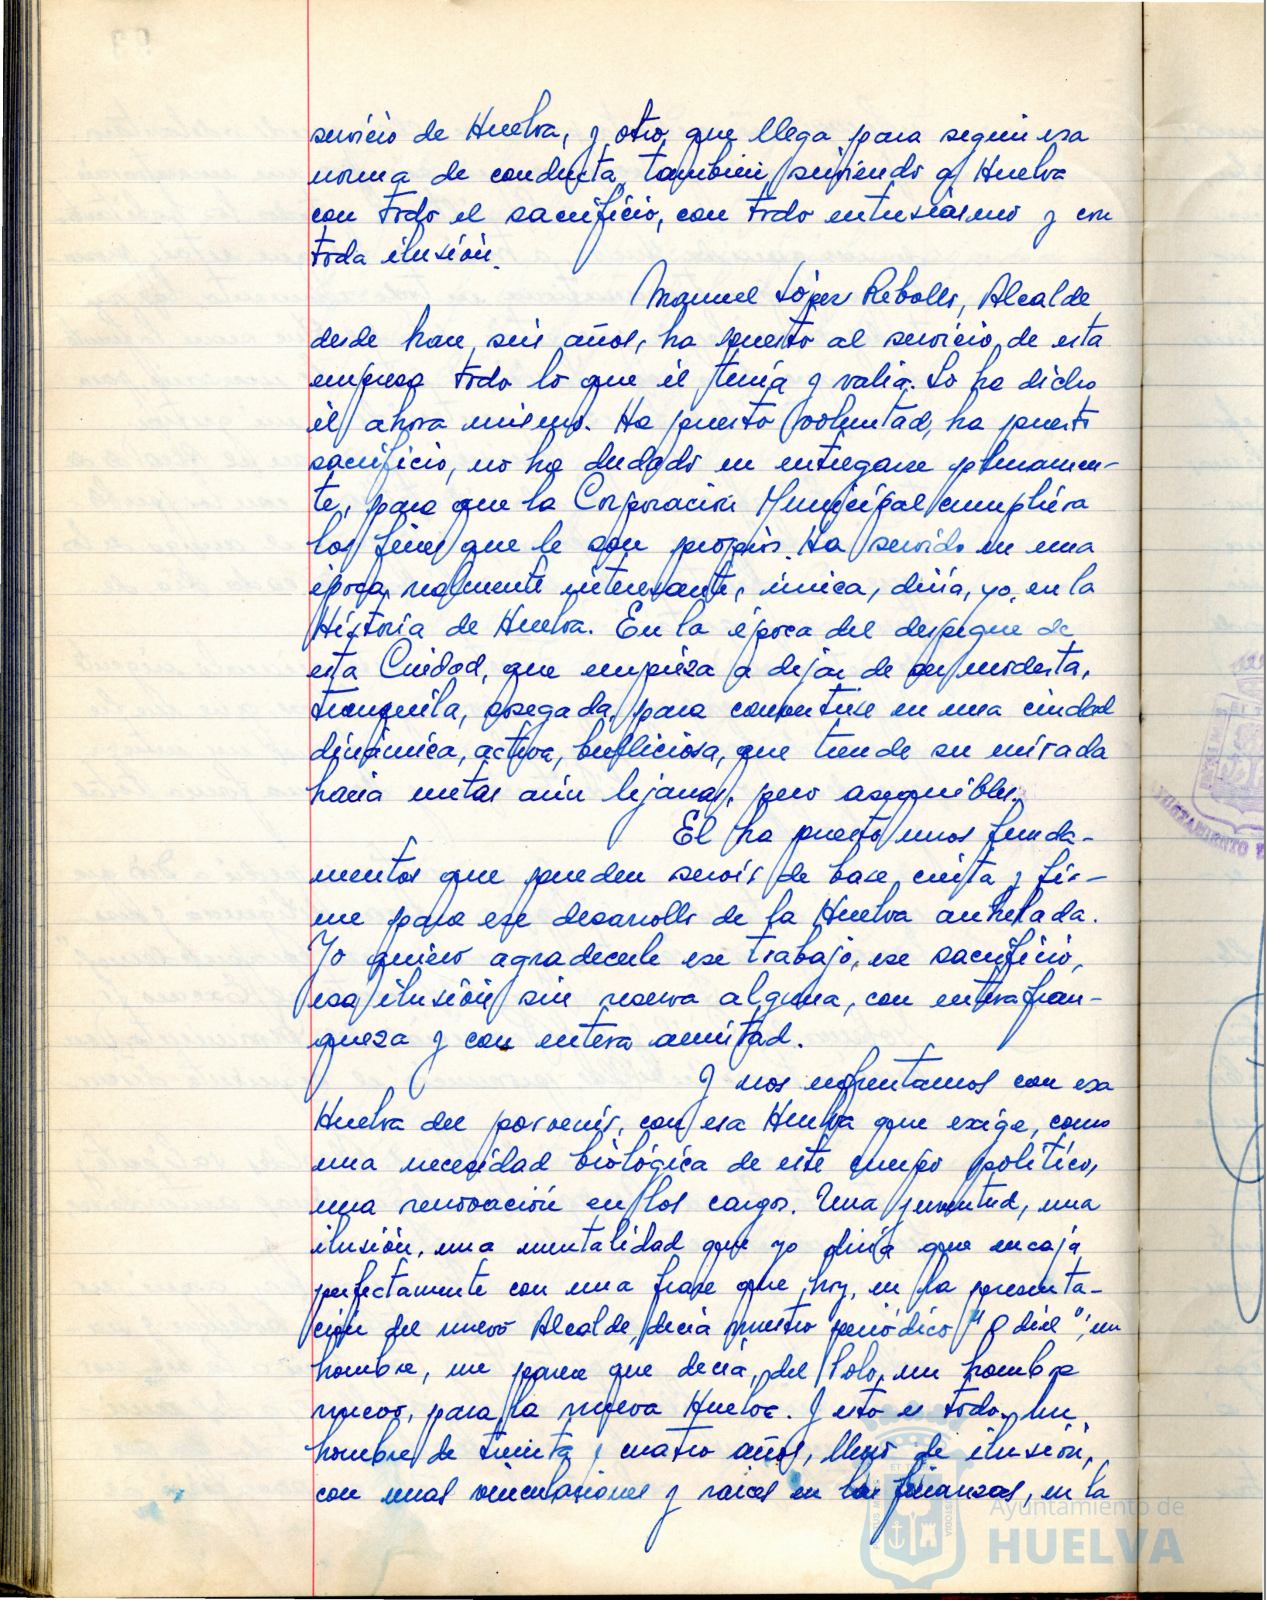 servicio de Huelva, y otro que llega para seguir esa
norma de conducta, tambien sirviendo a Huelva
con todo el sacrificio, con todo entusiasmo y con
toda ilusión.
Manuel López Rebollo, Alcalde
desde hace seis años, ha puesto al servicio de esta
empresa todo lo que él tenía y valía. Lo ha dicho
él ahora mismo. Ha puesto voluntad, ha puesto
sacrificio, no ha dudado en entregarse plenamen-
te, para que la Corporación Municipal cumpliera
los fines que le son propios. Ha servido en una
época realmente interesante, única, diría yo, en la
Historia de Huelva. En la época del despegue de
esta Ciudad, que empieza a dejar de ser modesta,
tranquila, sosegada, para convertirse en una ciudad
dinámica, activa, bulliciosa, que tiende su mirada
hacia metas aún lejanas, pero asequibles.
El ha puesto unos funda-
mentos que pueden servir de base cierta y fir-
me para ese desarrollo de la Huelva anhelada.
Yo quiero agradecerle ese trabajo, ese sacrificio,
esa ilusión sin reserva alguna, con entera fran-
queza y con entera amistad.
Y nos enfrentamos con esa
Huelva del porvenir, con esa Huelva que exige, como
una necesidad biológica de este cuerpo político,
una renovación en los cargos. Una juventud, una
ilusión, una mentalidad que yo diría que encaja
perfectamente con una frase que hoy, en la presenta-
ción del nuevo Alcalde, decía nuestro periódico "Odiel"; un
hombre, me parece que decía, del Polo, un hombre
nuevo, para la nueva Huelva. Y esto es todo. Un
hombre de treinta y cuatro años, lleno de ilusión,
con unas vinculaciones y raices en las finanzas, en la
Ayuntamiento de
HUELVA